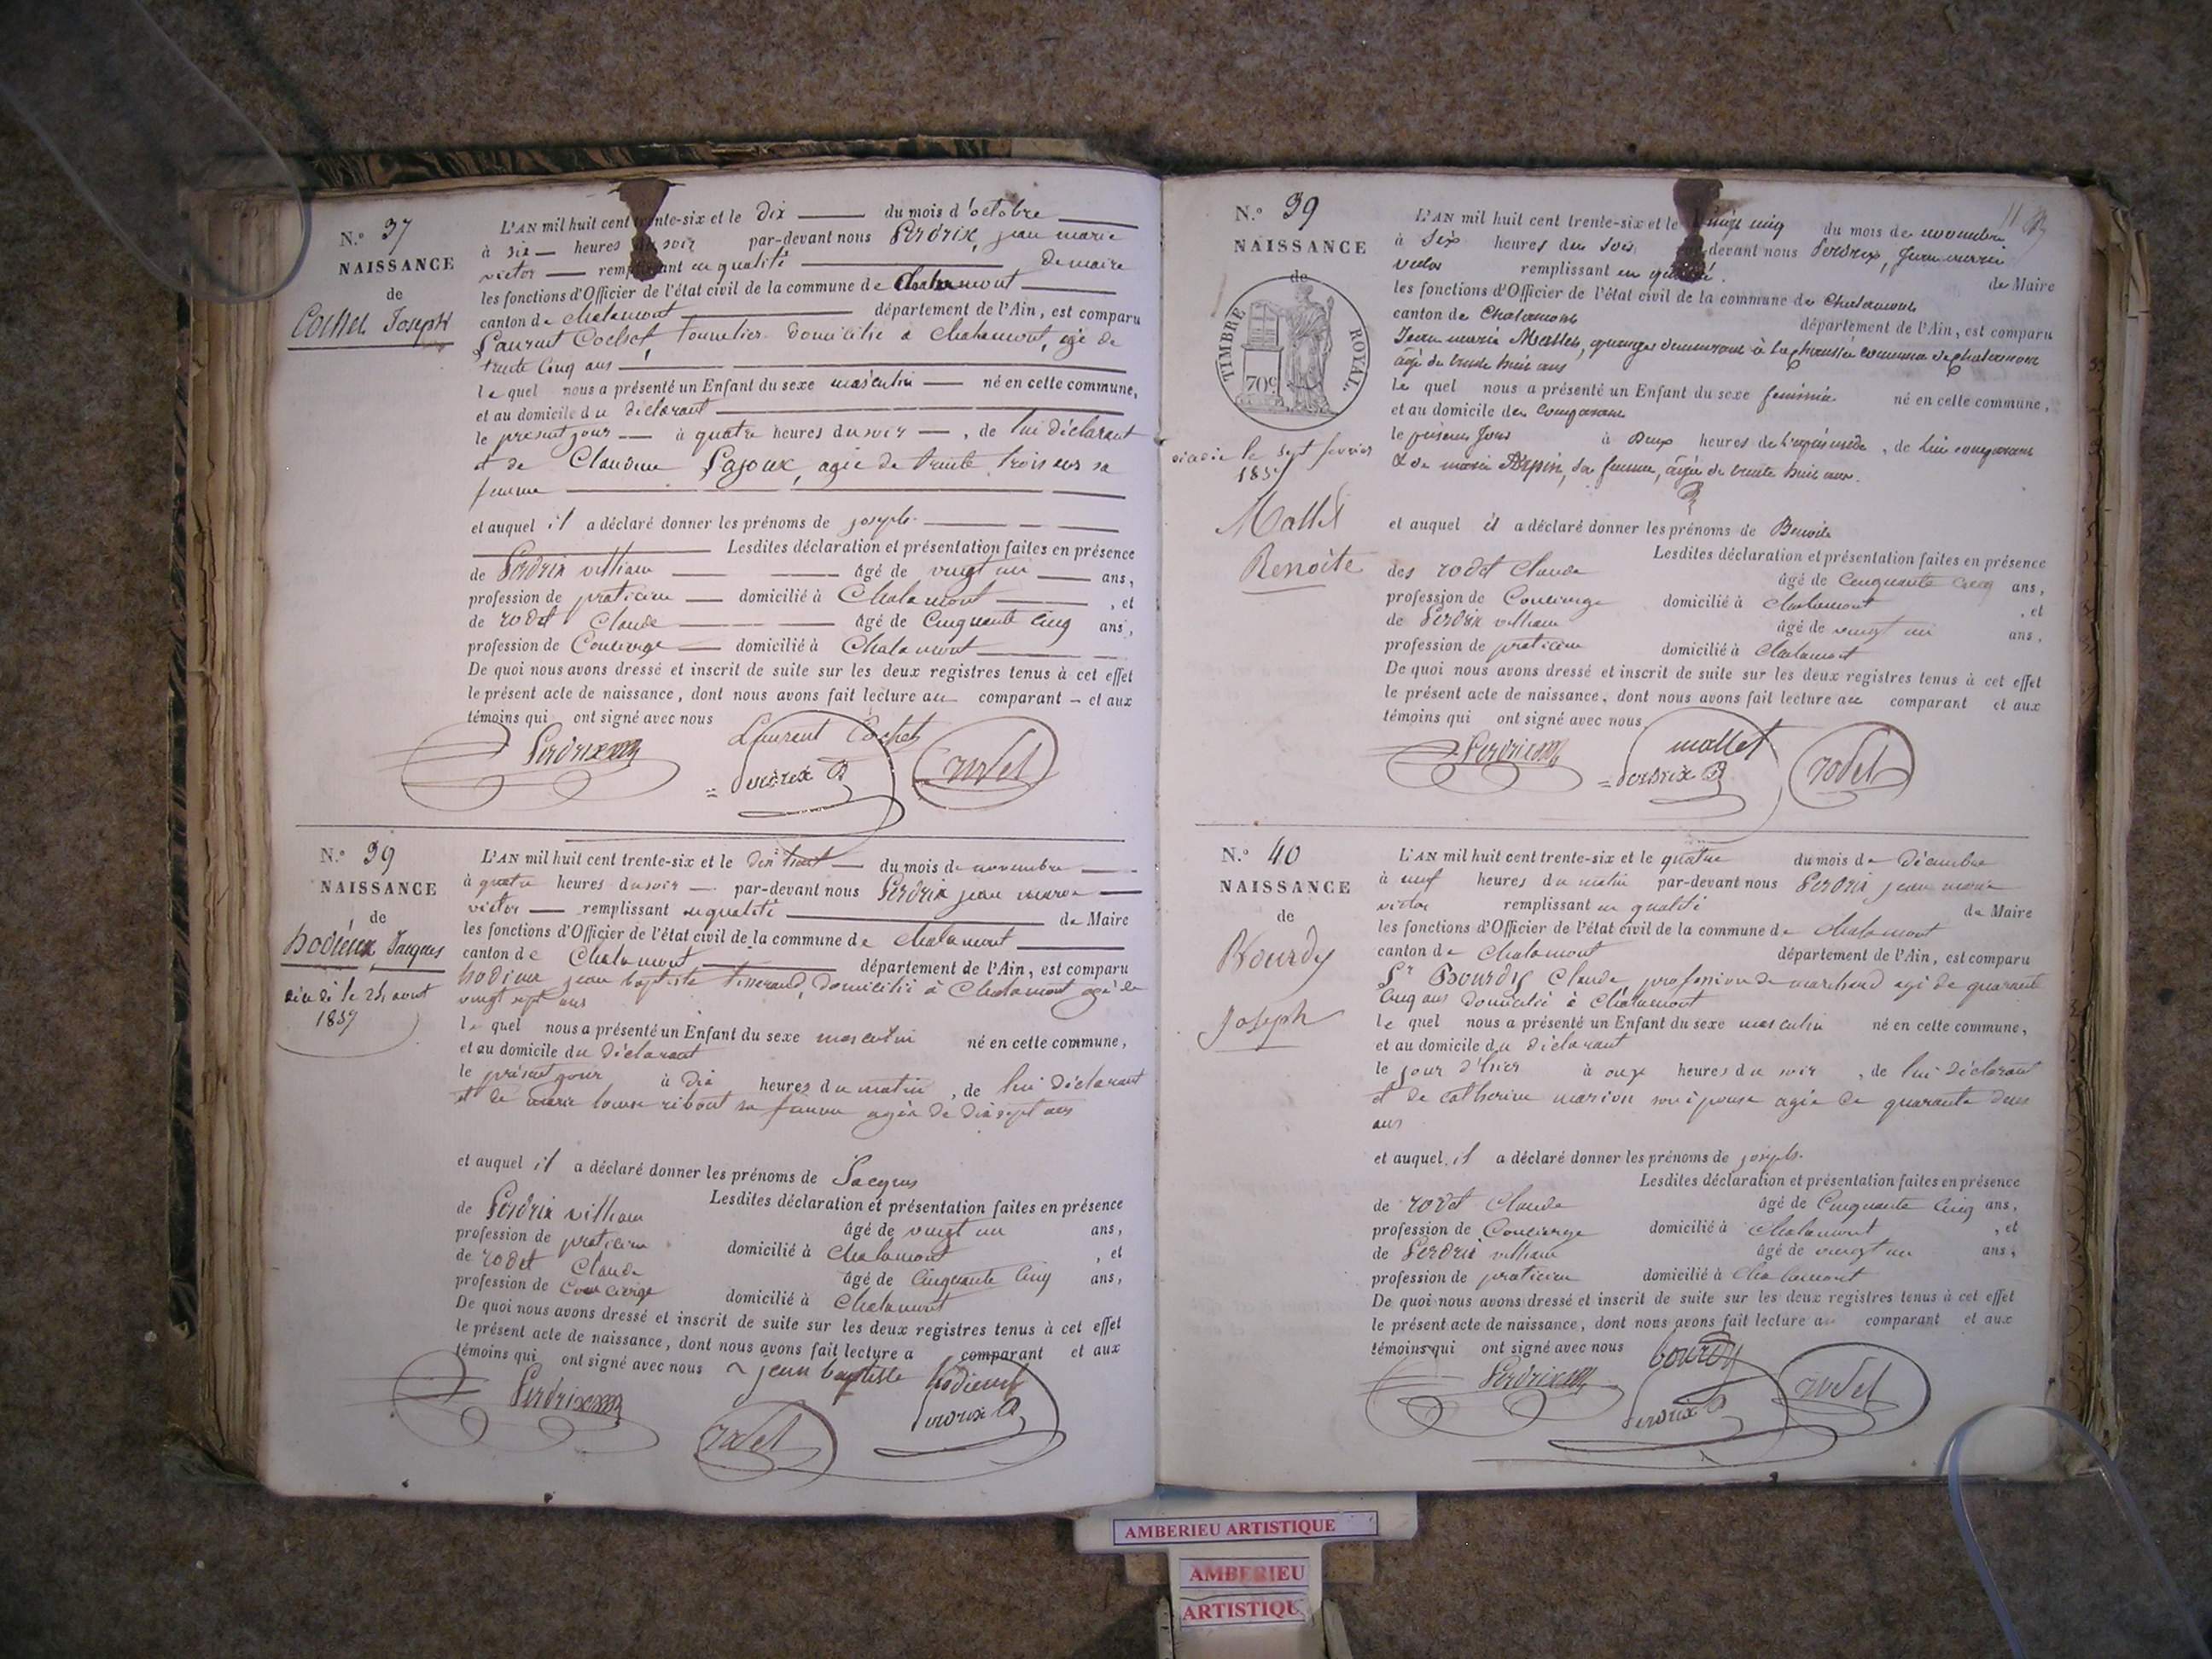 N.o 37
NAISSANCE
de
Cochet Joseph
L'AN mil huit cent trente-six et le dix du mois d'octobre
à six heures du soir par-devant nous Perdrix, jean marie
victor remplissant en qualité de maire
les fonctions d'Officier de l'état civil de la commune de Chalamont
canton de chalamont département de l'Ain, est comparu
Laurent Cochet, tonnelier domicilié à Chalamont, agé de
trente cinq ans
le quel nous a présenté un Enfant du sexe masculin né en cette commune,
et au domicile du déclarant
le présent jour à quatre heures du soir, de lui déclarant
et de Claudine Pajoux, agée de trente trois ans sa
femme
et auquel il a déclaré donner les prénoms de joseph
Lesdites déclaration et présentation faites en présence
de Perdrix villiam âgé de vingt un ans,
profession de praticien domicilié à Chalamont, et
de rodet Claude âgé de Cinquante cinq ans,
profession de Concierge domicilié à Chalamont
De quoi nous avons dressé et inscrit de suite sur les deux registres tenus à cet effet
le présent acte de naissance, dont nous avons fait lecture au comparant – et aux
témoins qui ont signé avec nous
Laurent Cochet
Perdrix
Perdrix
rodet
N.o 39
NAISSANCE
de
hodieux Jacques
1837
L'AN mil huit cent trente-six et le dix huit du mois de novembre
à quatre heures du soir par-devant nous Perdrix jean marie
victor remplissant en qualité de Maire
les fonctions d'Officier de l'état civil de la commune de chalamont
canton de Chalamont département de l'Ain, est comparu
hodieux jean baptiste tisserand, domicilié à Chalamont agé de
vingt sept ans
le quel nous a présenté un Enfant du sexe masculin né en cette commune,
et au domicile du déclarant
le présent jour à dix heures du matin, de lui déclarant
et de marie louise ribout sa femme agée de dix sept ans
et auquel il a déclaré donner les prénoms de Jacques
Lesdites déclaration et présentation faites en présence
de Perdrix villiam âgé de vingt un ans,
profession de praticien domicilié à chalamont, et
de rodet Claude âgé de Cinquante Cinq ans,
profession de Concierge domicilié à Chalamont
De quoi nous avons dressé et inscrit de suite sur les deux registres tenus à cet effet
le présent acte de naissance, dont nous avons fait lecture a comparant et aux
témoins qui ont signé avec nous
jean baptiste hodieux
Perdrix
rodet
Perdrix
N.o 39
NAISSANCE
de
TIMBRE ROYAL.
70c
le sept fevrier
1837
Mallet
Benoite
L'AN mil huit cent trente-six et le vingt cinq du mois de novembre
à six heures du soir par-devant nous Perdrix, Jean marie
victor remplissant en qualité de Maire
les fonctions d'Officier de l'état civil de la commune de Chalamont
canton de Chalamont département de l'Ain, est comparu
Jean marie Mallet, demeurant à la chaussée commune de chalamont
âgé de trente huit ans
le quel nous a présenté un Enfant du sexe feminin né en cette commune,
et au domicile du comparant
le présent Jour à Deux heures de l'après midi, de lui comparant
& de marie Arpin, sa femme, âgée de trente huit ans.
et auquel il a déclaré donner les prénoms de Benoite
Lesdites déclaration et présentation faites en présence
des rodet Claude âgé de Cinquante Cinq ans,
profession de Concierge domicilié à Chalamont, et
de Perdrix villiam âgé de vingt un ans,
profession de praticien domicilié à Chalamont
De quoi nous avons dressé et inscrit de suite sur les deux registres tenus à cet effet
le présent acte de naissance, dont nous avons fait lecture au comparant et aux
témoins qui ont signé avec nous
mallet
Perdrix
Perdrix
rodet
N.o 40
NAISSANCE
de
Bourdy
Joseph
L'AN mil huit cent trente-six et le quatre du mois de Décembre
à neuf heures du matin par-devant nous Perdrix jean marie
victor remplissant en qualité de Maire
les fonctions d'Officier de l'état civil de la commune de chalamont
canton de chalamont département de l'Ain, est comparu
Sr Bourdy Claude, profession de marchand agé de quarante
Cinq ans domicilié à Chalamont
le quel nous a présenté un Enfant du sexe masculin né en cette commune,
et au domicile du déclarant
le jour d'hier à onze heures du soir, de lui déclarant
et de catherine marion son épouse agée de quarante deux
ans
et auquel il a déclaré donner les prénoms de joseph
Lesdites déclaration et présentation faites en présence
de rodet Claude âgé de Cinquante Cinq ans,
profession de Concierge domicilié à Chalamont, et
de Perdrix villiam âgé de vingt un ans,
profession de praticien domicilié à Chalamont
De quoi nous avons dressé et inscrit de suite sur les deux registres tenus à cet effet
le présent acte de naissance, dont nous avons fait lecture au comparant et aux
témoins qui ont signé avec nous
bourdy
Perdrix
Perdrix
rodet
AMBERIEU ARTISTIQUE
AMBERIEU
ARTISTIQU